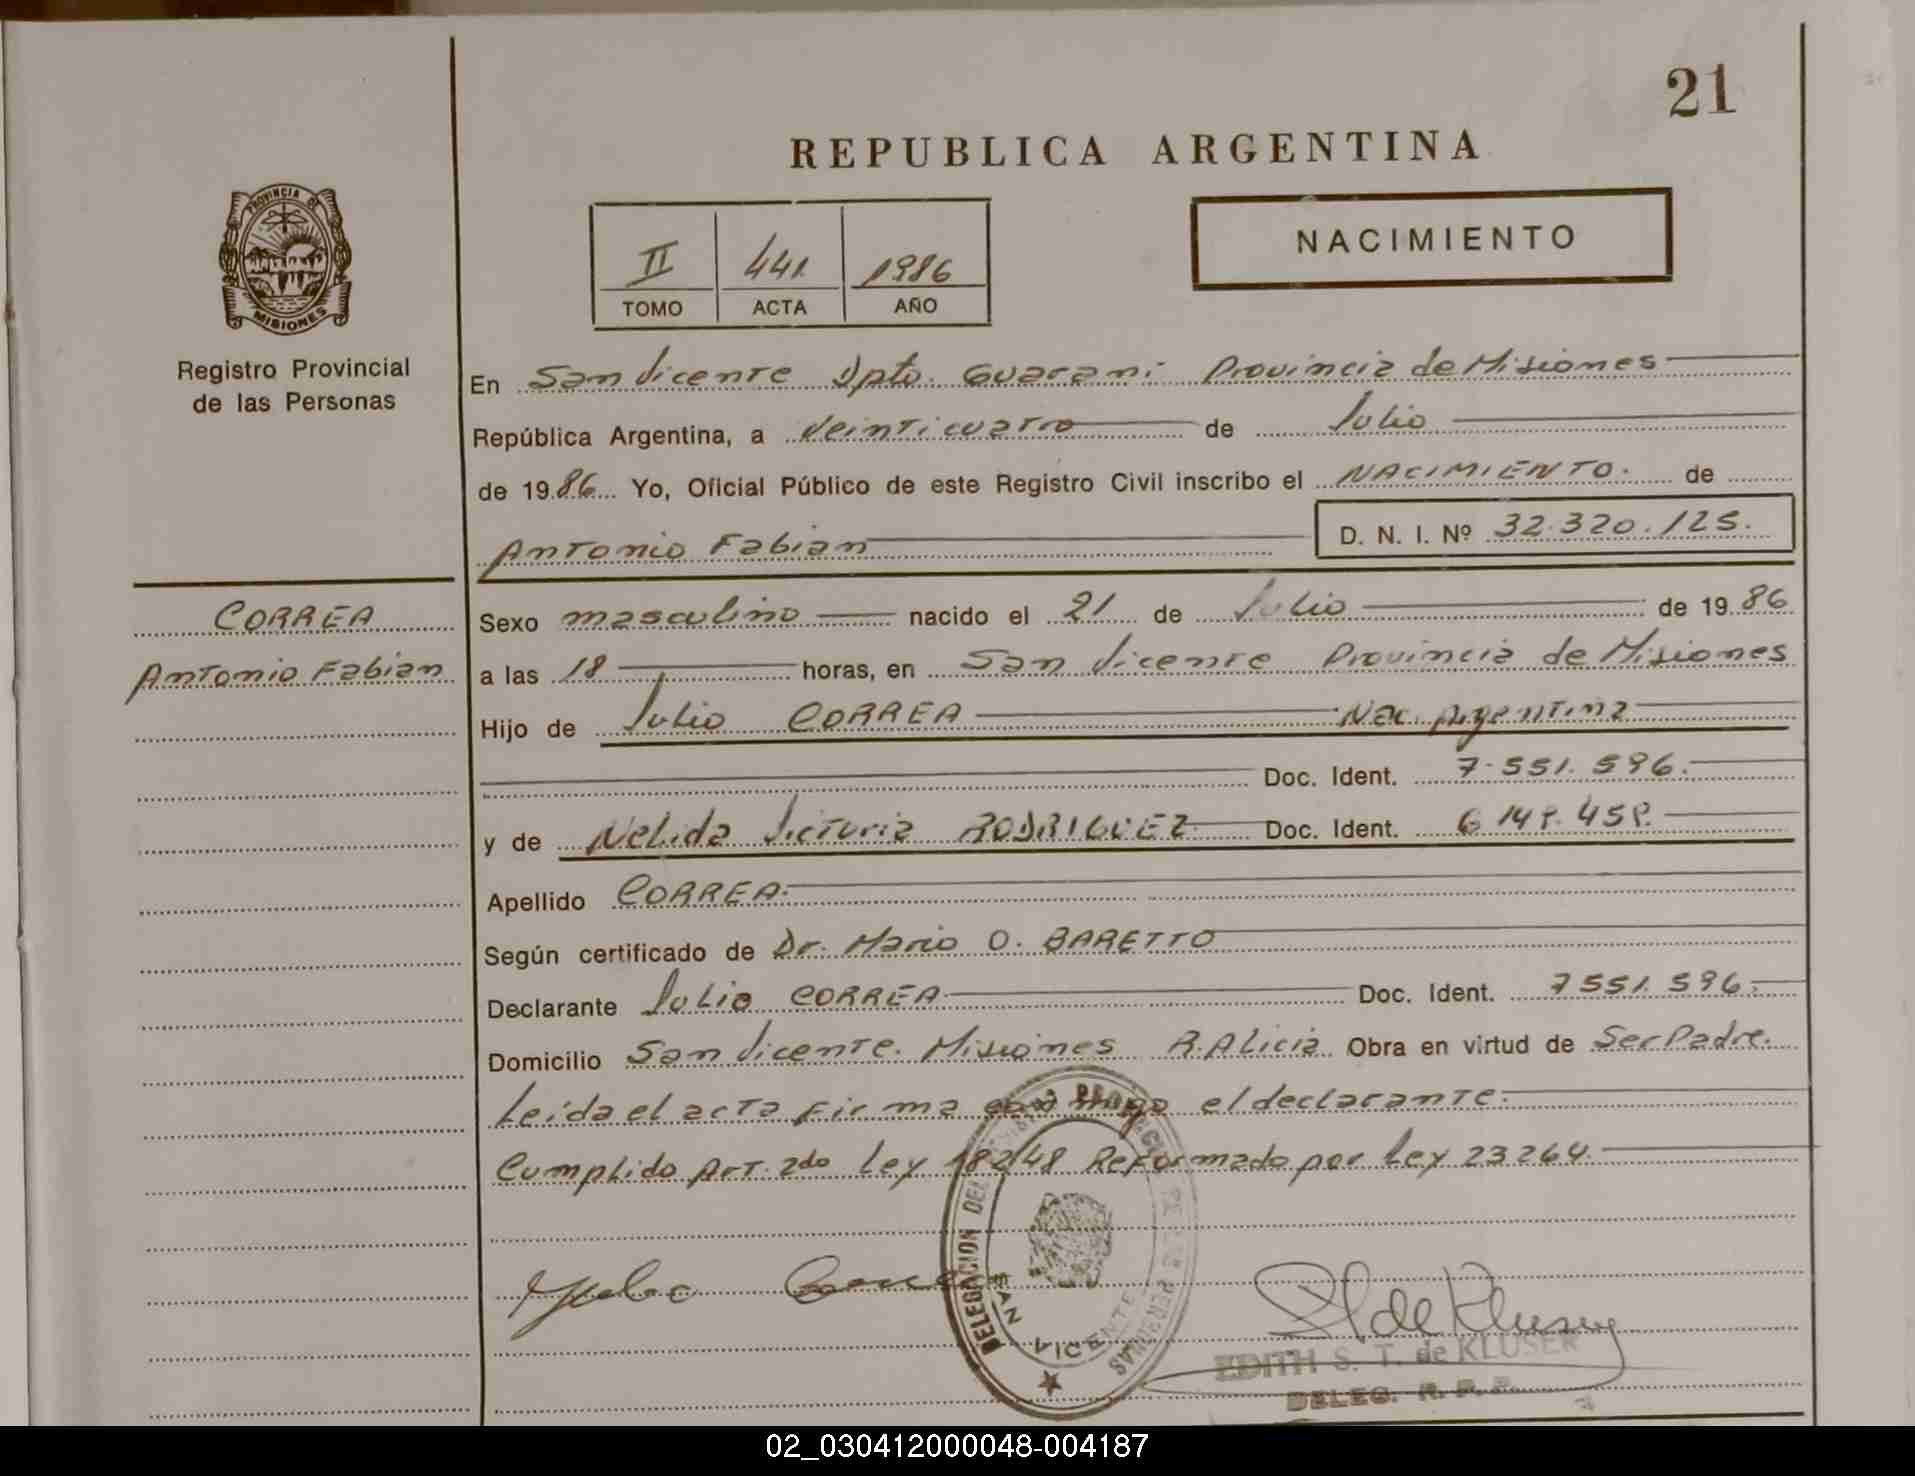 21
REPUBLICA ARGENTINA
PROVINCIA DE
MISIONES
Registro Provincial
de las Personas
II 441 1986
TOMO ACTA AÑO
NACIMIENTO
En San Vicente Dpto. Guaraní Provincia de Misiones
República Argentina, a veinticuatro de Julio
de 1986 Yo, Oficial Público de este Registro Civil inscribo el NACIMIENTO. de
Antonio Fabian D. N. I. Nº 32.320.125.
CORREA
Antonio Fabian
Sexo masculino nacido el 21 de Julio de 1986
a las 18 horas, en San Vicente Provincia de Misiones
Hijo de Julio CORREA Nac. Argentina
Doc. Ident. 7.551.596.
y de Nelida Victoria RODRIGUEZ Doc. Ident.
Apellido CORREA.
Según certificado de Dr. Mario O. BARETTO
Declarante Julio CORREA Doc. Ident. 7551.596.
Domicilio San Vicente. Misiones R. Alicia Obra en virtud de Ser Padre.
Leida el acta firma conmigo el declarante.
Cumplido Art. 2do Ley 18248 Reformado por Ley 23264.
DELEGACION DEL DE LAS PERSONAS
SAN VICENTE
EDITH S. T. de KLUSER
DELEG. R. P. P.
02_030412000048-004187